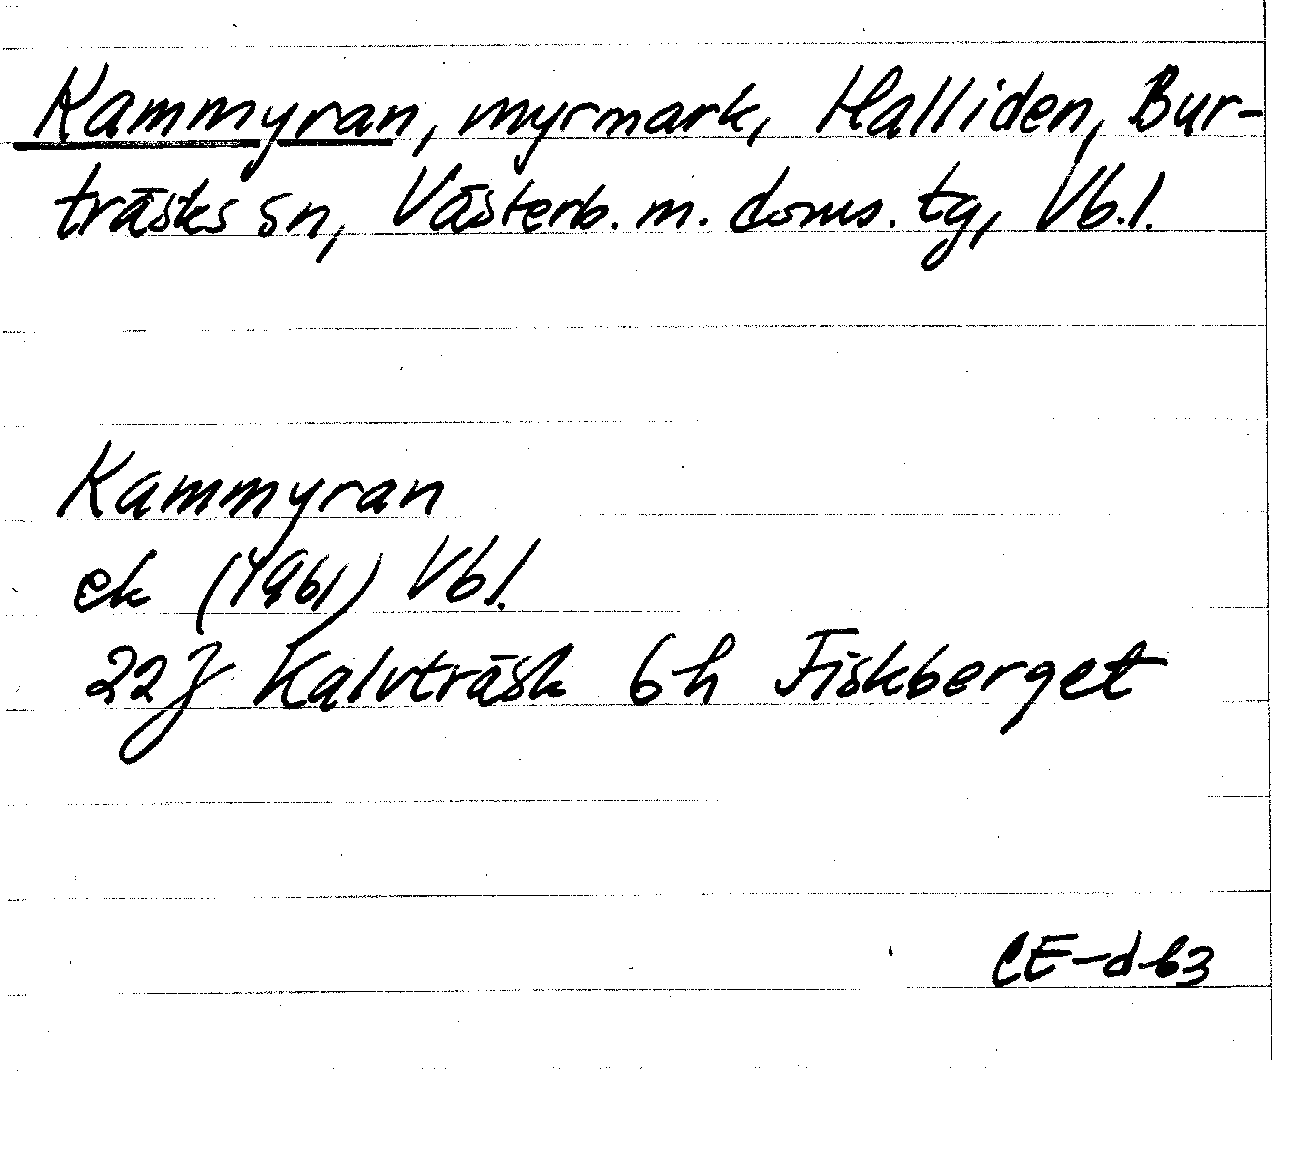 Kammyran, myrmark, Halliden, Bur-
träsks sn, Västerb. m. doms. tg, Vb.l.
Kammyran
ek (1961) Vbl.
22J Kalvträsk 6h Fiskberget
CE-d-63